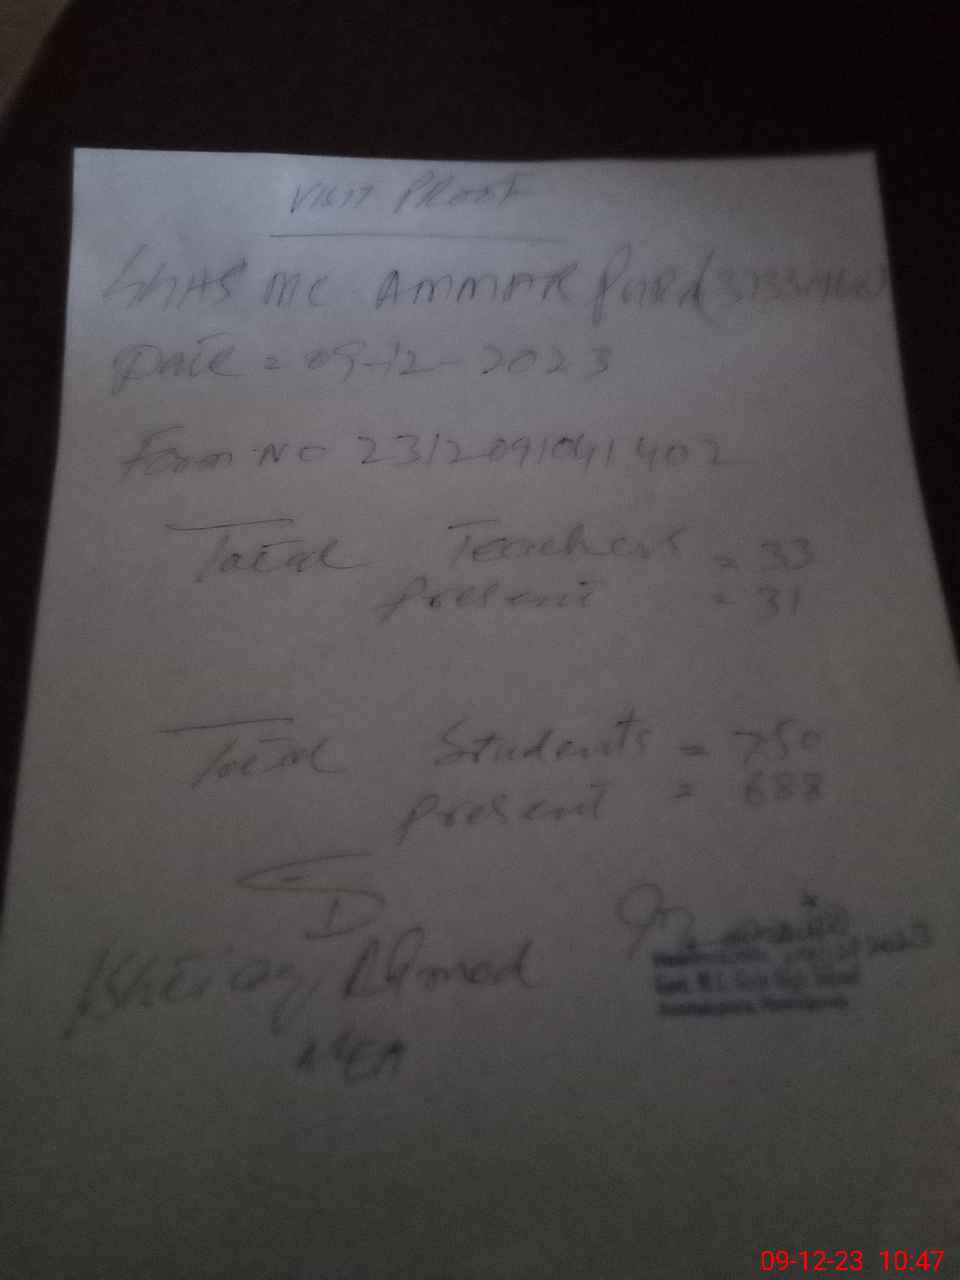 VISIT PROOF
GGHS MC AMMAR Pura
Date = 09-12-2023
Form No 2312091041402
Total Teachers = 33
Present = 31
Total Students = 750
Present = 688
Ahmed
09-12-23 10:47